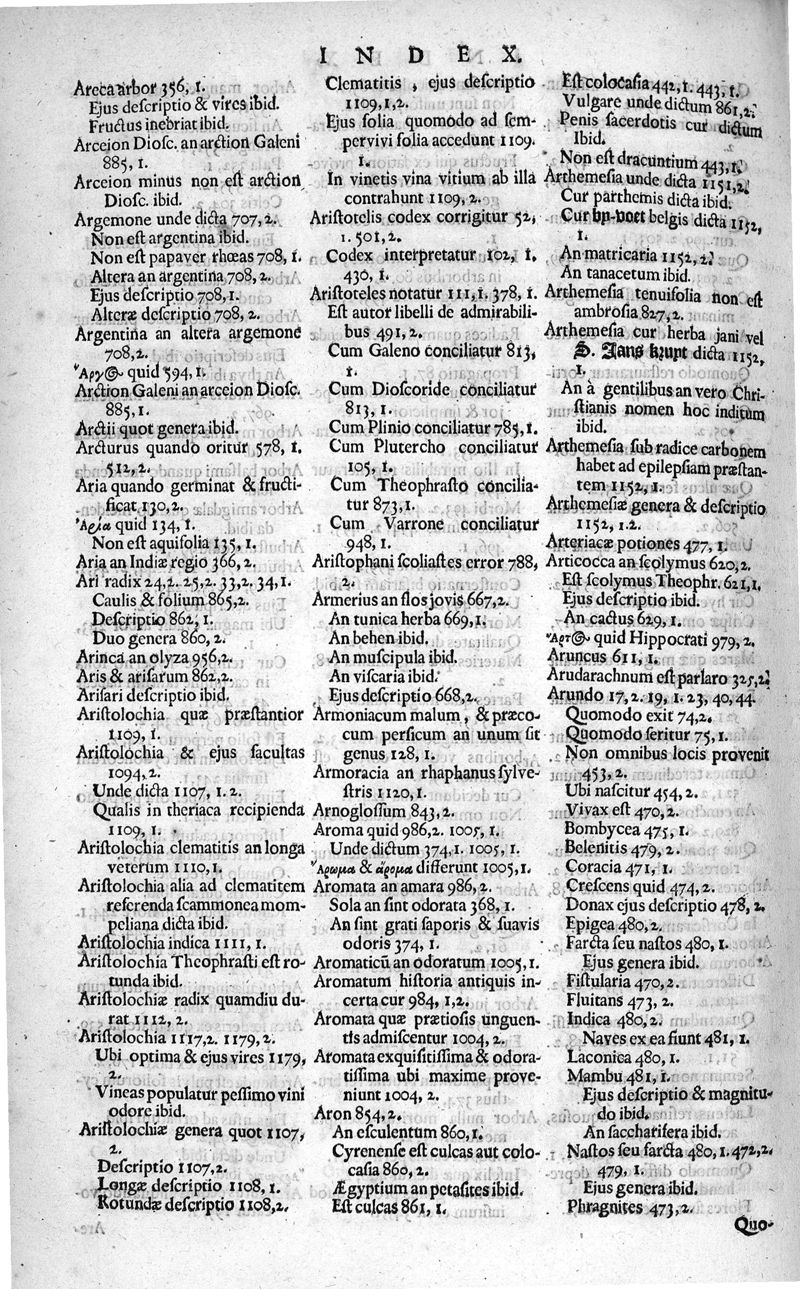 INDEX.
Areca arbor 356, 1.
Ejus descriptio & vires ibid.
Fructus inebriat ibid.
Arceion Diosc. an arction Galeni
885, 1.
Arceion minus non est arction
Diosc. ibid.
Argemone unde dicta 707, 2.
Non est argentina ibid.
Non est papaver rhœas 708, 1.
Altera an argentina 708, 2.
Ejus descriptio 708, 1.
Alteræ descriptio 708, 2.
Argentina an altera argemone
708, 2.
quid 594, 1.
Arction Galeni an arceion Diosc.
885, 1.
Arctii quot genera ibid.
Arcturus quando oritur 578, 1.
512, 2.
Aria quando germinat & fructi-
ficat 130, 2.
Ἀρία quid 134, 1.
Non est aquifolia 135, 1.
Aria an Indiæ regio 366, 2.
Ari radix 24, 2. 25, 2. 33, 2. 34, 1.
Caulis & folium 865, 2.
Descriptio 862, 1.
Duo genera 860, 2.
Arinca an olyza 956, 2.
Aris & arisarum 862, 2.
Arisari descriptio ibid.
Aristolochia quæ præstantior
1109, 1.
Aristolochia & ejus facultas
1094, 2.
Unde dicta 1107, 1. 2.
Qualis in theriaca recipienda
1109, 1.
Aristolochia clematitis an longa
veterum 1110, 1.
Aristolochia alia ad clematitem
referenda scammonea mom-
peliana dicta ibid.
Aristolochia indica 1111, 1.
Aristolochia Theophrasti est ro-
tunda ibid.
Aristolochiæ radix quamdiu du-
rat 1112, 2.
Aristolochia 1117, 2. 1179, 2.
Ubi optima & ejus vires 1179,
2.
Vineas populatur pessimo vini
odore ibid.
Aristolochiæ genera quot 1107,
2.
Descriptio 1107, 2.
Longæ descriptio 1108, 1.
Rotundæ descriptio 1108, 2.
Clematitis, ejus descriptio
1109, 1, 2.
Ejus folia quomodo ad sem-
pervivi folia accedunt 1109.
1.
In vinetis vina vitium ab illa
contrahunt 1109, 2.
Aristotelis codex corrigitur 52,
1. 501, 2.
Codex interpretatur 102, 1.
430, 1.
Aristoteles notatur 111, 1. 378, 1.
Est autor libelli de admirabili-
bus 491, 2.
Cum Galeno conciliatur 813,
1.
Cum Dioscoride conciliatur
813, 1.
Cum Plinio conciliatur 785, 1.
Cum Plutercho conciliatur
105, 1.
Cum Theophrasto concilia-
tur 873, 1.
Cum Varrone conciliatur
948, 1.
Aristophani scoliastes error 788,
2.
Armerius an flos jovis 667, 2.
An tunica herba 669, 1.
An behen ibid.
An muscipula ibid.
An viscaria ibid.
Ejus descriptio 668, 2.
Armoniacum malum, & præco-
cum persicum an unum sit
genus 128, 1.
Armoracia an rhaphanus sylve-
stris 1120, 1.
Arnoglossum 843, 2.
Aroma quid 986, 2. 1005, 1.
Unde dictum 374, 1. 1005, 1.
Ἄρωμα & ἄρομα differunt 1005, 1.
Aromata an amara 986, 2.
Sola an sint odorata 368, 1.
An sint grati saporis & suavis
odoris 374, 1.
Aromaticũ an odoratum 1005, 1.
Aromatum historia antiquis in-
certa cur 984, 1, 2.
Aromata quæ prætiosis unguen-
tis admiscentur 1004, 2.
Aromata exquisitissima & odora-
tissima ubi maxime prove-
niunt 1004, 2.
Aron 854, 2.
An esculentum 860, 1.
Cyrenense est culcas aut colo-
casia 860, 2.
Ægyptium an petasites ibid.
Est culcas 861, 1.
Est colocasia 442, 1. 443, 1.
Vulgare unde dictum 861, 2.
Penis sacerdotis cur dictum
Ibid.
Non est dracuntium 443, 1.
Arthemesia unde dicta 1151, 2.
Cur parthemis dicta ibid.
Cur by-voet belgis dicta 1152,
1.
An matricaria 1152, 2.
An tanacetum ibid.
Arthemesia tenuifolia non est
ambrosia 827, 2.
Arthemesia cur herba jani vel
S. Jans krupt dicta 1152,
1.
An à gentilibus an vero Chri-
stianis nomen hoc inditum
ibid.
Arthemesia sub radice carbonem
habet ad epilepsiam præstan-
tem 1152, 1.
Arthemesiæ genera & descriptio
1152, 1. 2.
Arteriacæ potiones 477, 1.
Articocca an scolymus 620, 2.
Est scolymus Theophr. 621, 1.
Ejus descriptio ibid.
An cactus 629, 1.
quid Hippocrati 979, 2.
Aruncus 611, 1.
Arudarachnum est parlaro 325, 2.
Arundo 17, 2. 19, 1. 23, 40, 44.
Quomodo exit 74, 2.
Quomodo seritur 75, 1.
Non omnibus locis provenit
453, 2.
Ubi nascitur 454, 2.
Vivax est 470, 2.
Bombycea 475, 1.
Belenitis 479, 2.
Coracia 471, 1.
Crescens quid 474, 2.
Donax ejus descriptio 478, 2.
Epigea 480, 2.
Farcta seu nastos 480, 1.
Ejus genera ibid.
Fistularia 470, 2.
Fluitans 473, 2.
Indica 480, 2.
Naves ex ea fiunt 481, 1.
Laconica 480, 1.
Mambu 481, 1.
Ejus descriptio & magnitu-
do ibid.
An saccharifera ibid.
Nastos seu farcta 480, 1. 472, 2.
479, 1.
Ejus genera ibid.
Phragnites 473, 2.
Quo-